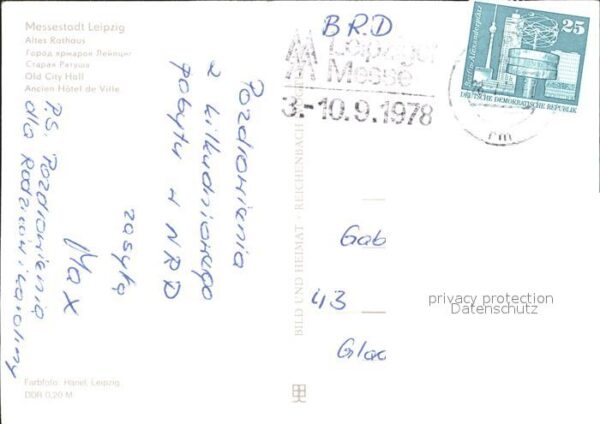 Messestadt Leipzig
Altes Rathaus
Город ярмарок Лейпциг
Старая Ратуша
Old City Hall
Ancien Hôtel de Ville
Pozdrowienia
z kilkudniowego
pobytu w NRD
zasyła
Max
P.S. Pozdrowienia
dla Rodziców i
Farbfoto: Hänel, Leipzig
DDR 0,20 M
BILD UND HEIMAT · REICHENBACH
BRD
Leipziger
Messe
3.-10.9.1978
25
Berlin, Alexanderplatz
DEUTSCHE DEMOKRATISCHE REPUBLIK
Gab
43
Glac
privacy protection
Datenschutz